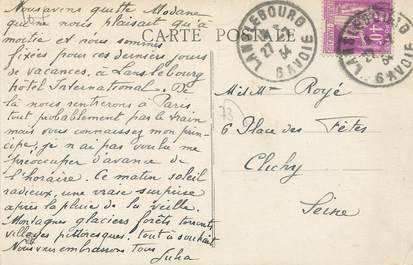 Nous avons quitté Modane
qui nous plaisait qu'à
moitié et nous sommes
fixées pour ces derniers jours
de vacances, à Lanslebourg
hôtel International. De
là nous rentrerons à Paris,
tout probablement par le train
mais vous connaissez mon prin-
cipe, je n'ai pas voulu me
préoccuper d'avance de
l'horaire. Ce matin soleil
radieux, une vraie surprise
après la pluie de la veille.
Montagnes glaciers forêts torrents
villages pittoresques, tout à souhait
Nous vous embrassons Tous
Julia
CARTE POSTALE
LANSLEBOURG
27
34
SAVOIE
LANSLEBOURG
34
SAVOIE
73
M et Mme Royé
6 Place des Fêtes
Clichy
Seine